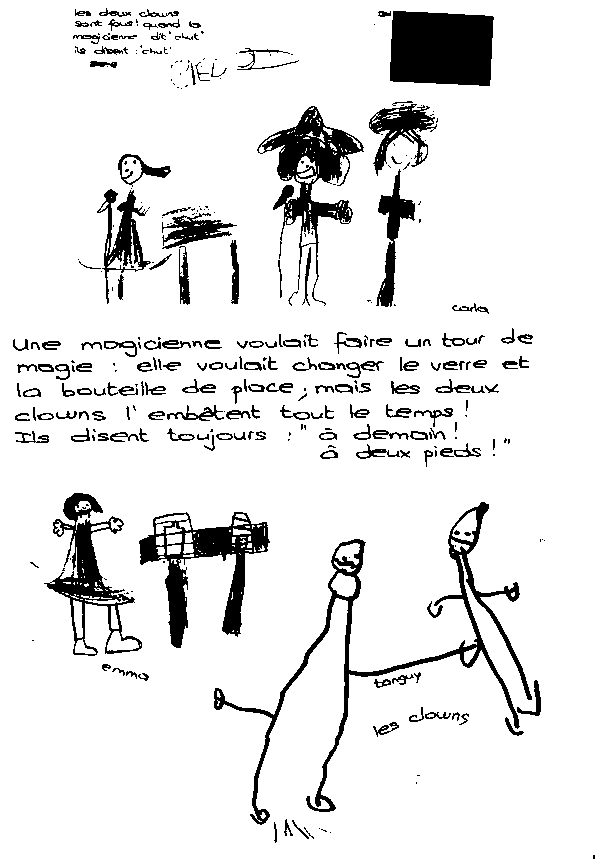 les deux clowns
sont fous! quand la
magicienne dit "chut"
ils disent : "chut"
CIEL
carla
Une magicienne voulait faire un tour de
magie : elle voulait changer le verre et
la bouteille de place, mais les deux
clowns l'embêtent tout le temps!
Ils disent toujours : "à demain!
à deux pieds!"
emma
tanguy
les clowns